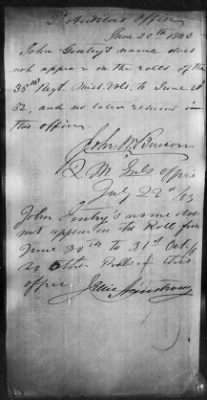 2d Auditor's Office
June 30th 1863
John Gentry's name does
not appear on the rolls of the
36th Regt. Vols. to June 30
62, and no later returns in
this office.
John
Q. M. Genls office
July 22d /63
John Gentry's name does
not appear on the Roll from
June 30th to 31st Oct.
no other Rolls in this
office
Armstrong